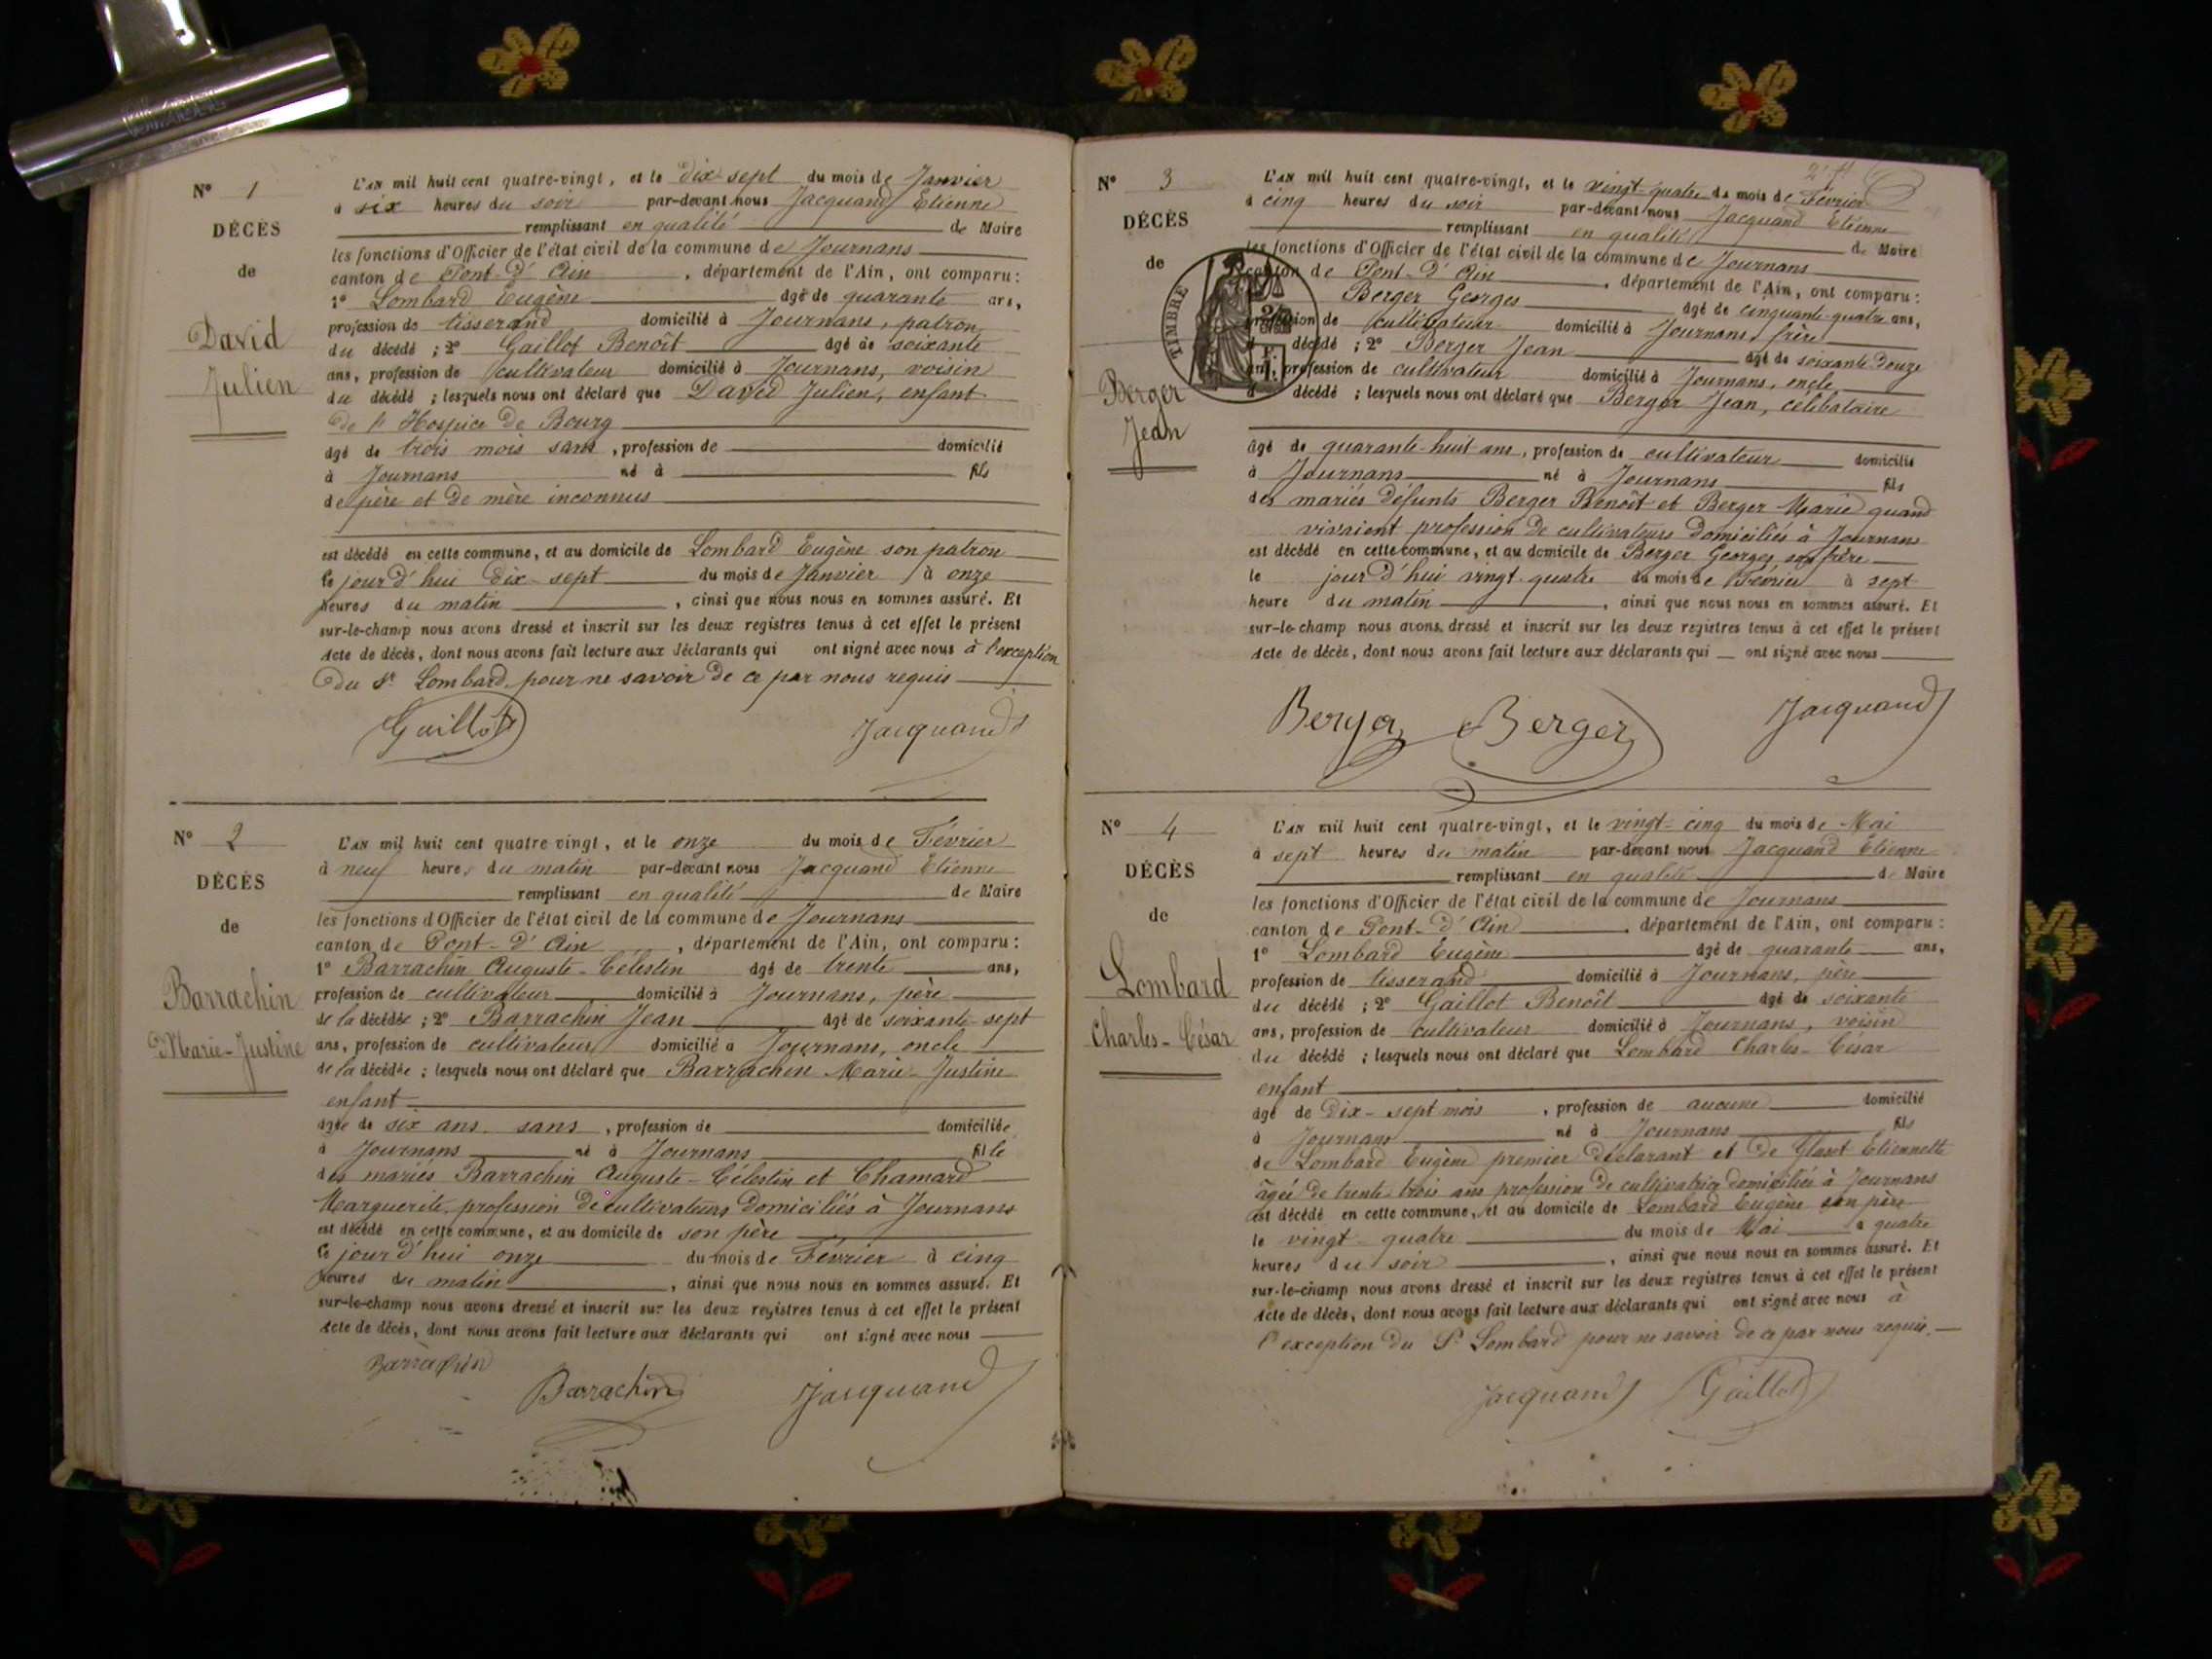 N° 1
DÉCÈS
de
David
Julien
L'AN mil huit cent quatre-vingt, et le dix sept du mois de Janvier
à six heures du soir par-devant nous Jacquand Etienne
remplissant en qualité de Maire
les fonctions d'Officier de l'état civil de la commune de Journans
canton de Pont-d'Ain, département de l'Ain, ont comparu :
1° Lombard Eugène âgé de quarante ans,
profession de tisserand domicilié à Journans, patron
du décédé ; 2° Gaillot Benoît âgé de soixante
ans, profession de cultivateur domicilié à Journans, voisin
du décédé ; lesquels nous ont déclaré que David Julien, enfant
de l'Hospice de Bourg
âgé de trois mois sans, profession de domicilié
à Journans né à fils
de père et de mère inconnus
est décédé en cette commune, et au domicile de Lombard Eugène son patron
le jour d'hui dix-sept du mois de Janvier à onze
heures du matin, ainsi que nous nous en sommes assuré. Et
sur-le-champ nous avons dressé et inscrit sur les deux registres tenus à cet effet le présent
Acte de décès, dont nous avons fait lecture aux déclarants qui ont signé avec nous à l'exception
du Sr Lombard pour ne savoir de ce par nous requis
Gaillot Jacquand
N° 2
DÉCÈS
de
Barrachin
Marie-Justine
L'AN mil huit cent quatre vingt, et le onze du mois de Février
à neuf heures du matin par-devant nous Jacquand Etienne
remplissant en qualité de Maire
les fonctions d'Officier de l'état civil de la commune de Journans
canton de Pont-d'Ain, département de l'Ain, ont comparu :
1° Barrachin Auguste-Célestin âgé de trente ans,
profession de cultivateur domicilié à Journans, père
de la décédée ; 2° Barrachin Jean âgé de soixante-sept
ans, profession de cultivateur domicilié à Journans, oncle
de la décédée ; lesquels nous ont déclaré que Barrachin Marie-Justine
enfant
âgée de six ans sans, profession de domiciliée
à Journans né à Journans fille
des mariés Barrachin Auguste-Célestin et Chamard
Marguerite, profession de cultivateurs domiciliés à Journans
est décédé en cette commune, et au domicile de son père
le jour d'hui onze du mois de Février à cinq
heures du matin, ainsi que nous nous en sommes assuré. Et
sur-le-champ nous avons dressé et inscrit sur les deux registres tenus à cet effet le présent
Acte de décès, dont nous avons fait lecture aux déclarants qui ont signé avec nous
Barrachin Barrachin Jacquand
N° 3
DÉCÈS
de
Berger
Jean
TIMBRE
L'AN mil huit cent quatre-vingt, et le vingt-quatre du mois de Février
à cinq heures du soir par-devant nous Jacquand Etienne
remplissant en qualité de Maire
les fonctions d'Officier de l'état civil de la commune de Journans
canton de Pont-d'Ain, département de l'Ain, ont comparu :
Berger Georges âgé de cinquante-quatre ans,
profession de cultivateur domicilié à Journans, frère
décédé ; 2° Berger Jean âgé de soixante douze
ans, profession de cultivateur domicilié à Journans, oncle
décédé ; lesquels nous ont déclaré que Berger Jean, célibataire
âgé de quarante-huit ans, profession de cultivateur domicilié
à Journans né à Journans fils
des mariés défunts Berger Benoît et Berger Marie quand
vivaient profession de cultivateurs domiciliés à Journans
est décédé en cette commune, et au domicile de Berger Georges, son frère
le jour d'hui vingt-quatre du mois de Février à sept
heure du matin, ainsi que nous nous en sommes assuré. Et
sur-le-champ nous avons dressé et inscrit sur les deux registres tenus à cet effet le présent
Acte de décès, dont nous avons fait lecture aux déclarants qui ont signé avec nous
Berger Berger Jacquand
N° 4
DÉCÈS
de
Lombard
Charles-César
L'AN mil huit cent quatre-vingt, et le vingt-cinq du mois de Mai
à sept heures du matin par-devant nous Jacquand Etienne
remplissant en qualité de Maire
les fonctions d'Officier de l'état civil de la commune de Journans
canton de Pont-d'Ain, département de l'Ain, ont comparu :
1° Lombard Eugène âgé de quarante ans,
profession de tisserand domicilié à Journans, père
du décédé ; 2° Gaillot Benoît âgé de soixante
ans, profession de cultivateur domicilié à Journans, voisin
du décédé ; lesquels nous ont déclaré que Lombard Charles-César
enfant
âgé de dix-sept mois, profession de aucune domicilié
à Journans né à Journans fils
de Lombard Eugène premier déclarant et de Etiennette
âgée de trente trois ans profession de cultivatrice domiciliée à Journans
est décédé en cette commune, et au domicile de Lombard Eugène son père
le vingt-quatre du mois de Mai à quatre
heures du soir, ainsi que nous nous en sommes assuré. Et
sur-le-champ nous avons dressé et inscrit sur les deux registres tenus à cet effet le présent
Acte de décès, dont nous avons fait lecture aux déclarants qui ont signé avec nous à
l'exception du Sr Lombard pour ne savoir de ce par nous requis.
Jacquand Gaillot